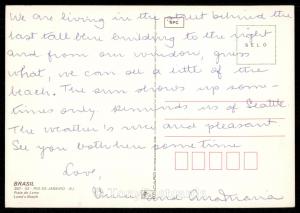 We are living in the street behind the
last tall blue building to the right
and from our window, guess
what, we can see a little of the
beach. The sun shows up some-
times only, reminds us of Seattle
The weather is nice and pleasant
See you both here some time
Love,
and Ana Maria
SPC
SELO
BRASIL
RIO DE JANEIRO - RJ
Praia do Leme
Leme's Beach